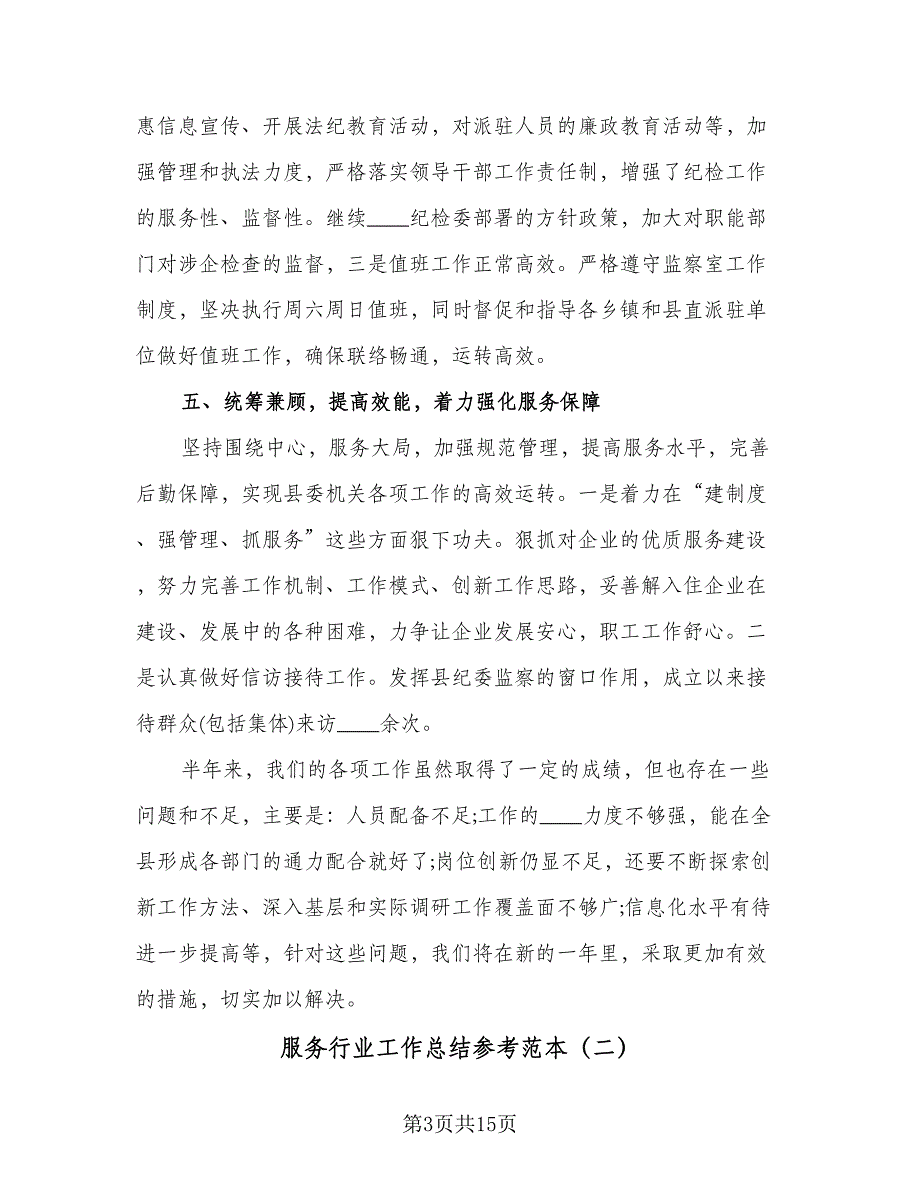 惠信息宣传、开展法纪教育活动，对派驻人员的廉政教育活动等，加
强管理和执法力度，严格落实领导干部工作责任制，增强了纪检工作
的服务性、监督性。继续____纪检委部署的方针政策，加大对职能部
门对涉企检查的监督，三是值班工作正常高效。严格遵守监察室工作
制度，坚决执行周六周日值班，同时督促和指导各乡镇和县直派驻单
位做好值班工作，确保联络畅通，运转高效。
五、统筹兼顾，提高效能，着力强化服务保障
坚持围绕中心，服务大局，加强规范管理，提高服务水平，完善
后勤保障，实现县委机关各项工作的高效运转。一是着力在“建制度
、强管理、抓服务”这些方面狠下功夫。狠抓对企业的优质服务建设
，努力完善工作机制、工作模式、创新工作思路，妥善解入住企业在
建设、发展中的各种困难，力争让企业发展安心，职工工作舒心。二
是认真做好信访接待工作。发挥县纪委监察的窗口作用，成立以来接
待群众(包括集体)来访____余次。
半年来，我们的各项工作虽然取得了一定的成绩，但也存在一些
问题和不足，主要是：人员配备不足;工作的____力度不够强，能在全
县形成各部门的通力配合就好了;岗位创新仍显不足，还要不断探索创
新工作方法、深入基层和实际调研工作覆盖面不够广;信息化水平有待
进一步提高等，针对这些问题，我们将在新的一年里，采取更加有效
的措施，切实加以解决。
服务行业工作总结参考范本（二）
第3页共15页